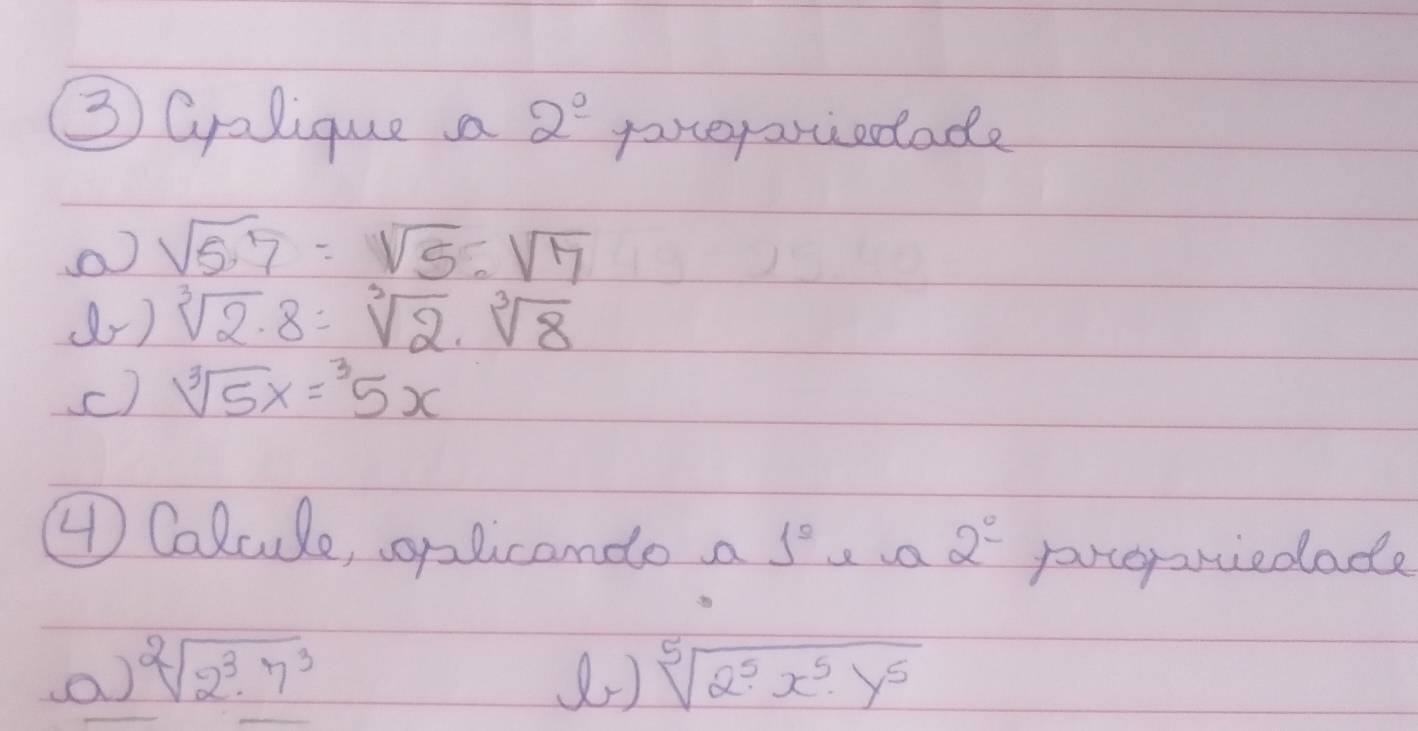 ③ Aplique a 2º propriedade
a) √5.7 = √5 . √7
b) ³√2.8 = ³√2 . ³√8
c) ³√5x = ³5x
④ Calcule, aplicando a 1º e a 2º propriedade
a) ²√2³.7³ b) ⁵√2⁵.x⁵.y⁵